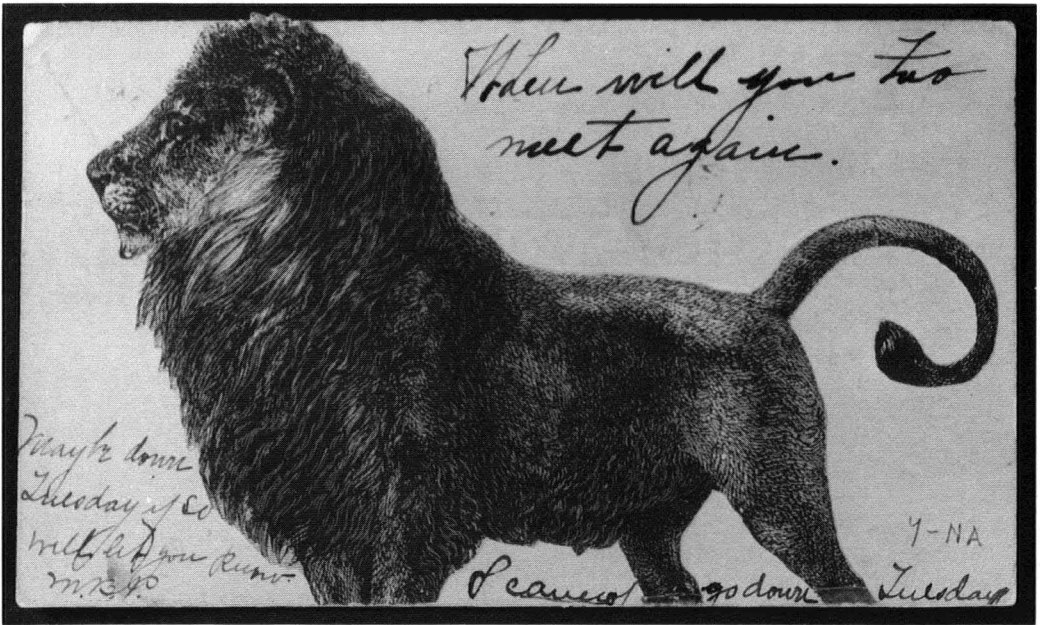 When will you two
meet again.
Maybe down
Tuesday if so
will let you know
I cannot go down Tuesday
Y-NA